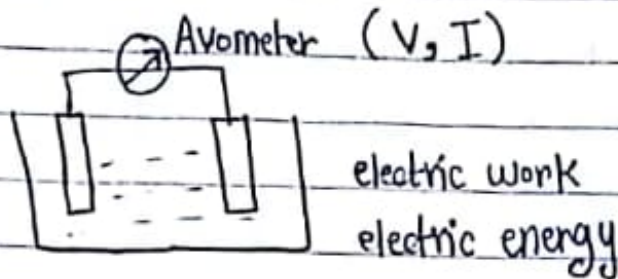 Avometer (V, I)
electric work
electric energy